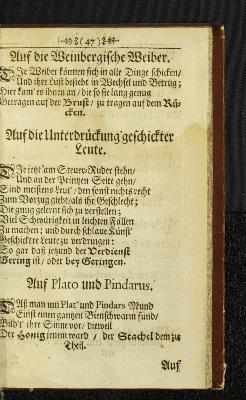 (47)
Auf die Weinbergische Weiber.
DIe Weiber können sich in alle Dinge schicken/
Und ihre Lust besteht in Wechsel und Betrug;
Hier kam' es ihnen an/ die so sie lang genug
Getragen auf der Brust/ zu tragen auf dem Rü-
cken.
Auf die Unterdrückung geschickter
Leute.
DIe jetzt am Steuer-Ruder stehn/
Und an der Printzen Seite gehn/
Sind meistens Leut'/ den sonst nichts recht
Zum Vorzug giebt/ als ihr Geschlecht;
Die gnug gelernt sich zu verstellen;
Viel Schwürigkeit in leichten Fällen
Zu machen; und durch schlaue Künst'
Geschickere Leute zu verdrungen:
So gar daß jetzund der Verdienst
Gering ist/ oder bey Geringen.
Auf Plato und Pindarus.
DAß man um Plat' und Pindars Mund
Einst einen gantzen Bienschwarm fund/
Bild't ihre Sinne vor/ dieweil
Der Honig jenem ward/ der Stachel dem zu
Theil.
Auf